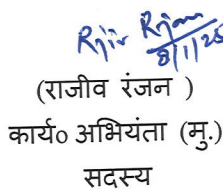 Rajiv Ranjan
8/1/25
(राजीव रंजन )
कार्य० अभियंता (मु.)
सदस्य